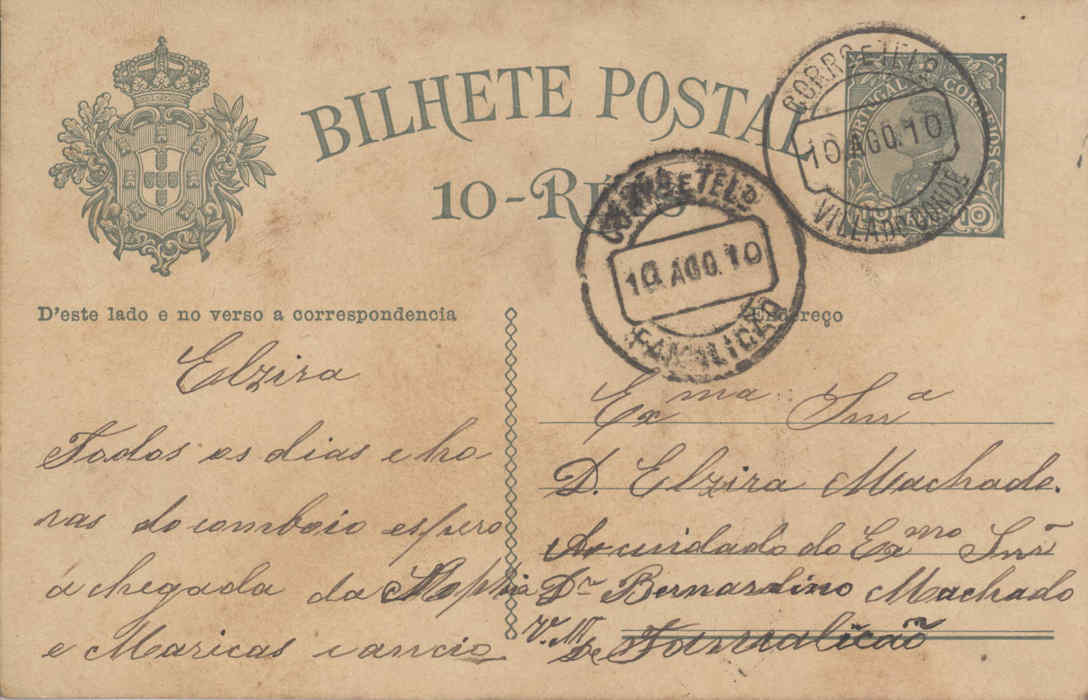 BILHETE POSTAL
10-RÉIS
PORTUGAL CORREIOS
CORRO E TELO
10.AGO.10
VILLA DO CONDE
CORRO E TELO
10.AGO.10
FAMALICÃO
D'este lado e no verso a correspondencia
Endereço
Elzira
Todos os dias e ho-
ras do comboio espero
a chegada da Sophia
e Maricas e ancio
Exma Snra
D. Elzira Machado.
Ao cuidado do Exmo Snr
Dr Bernardino Machado
V. N. de Famalicão